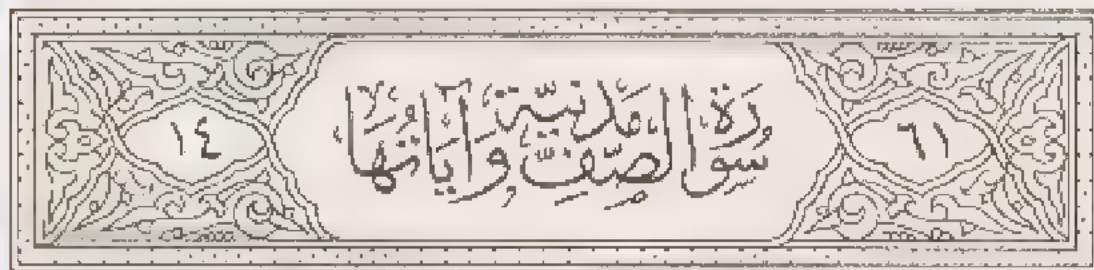 ٦١
سورة الصف مدنية وآياتها
١٤